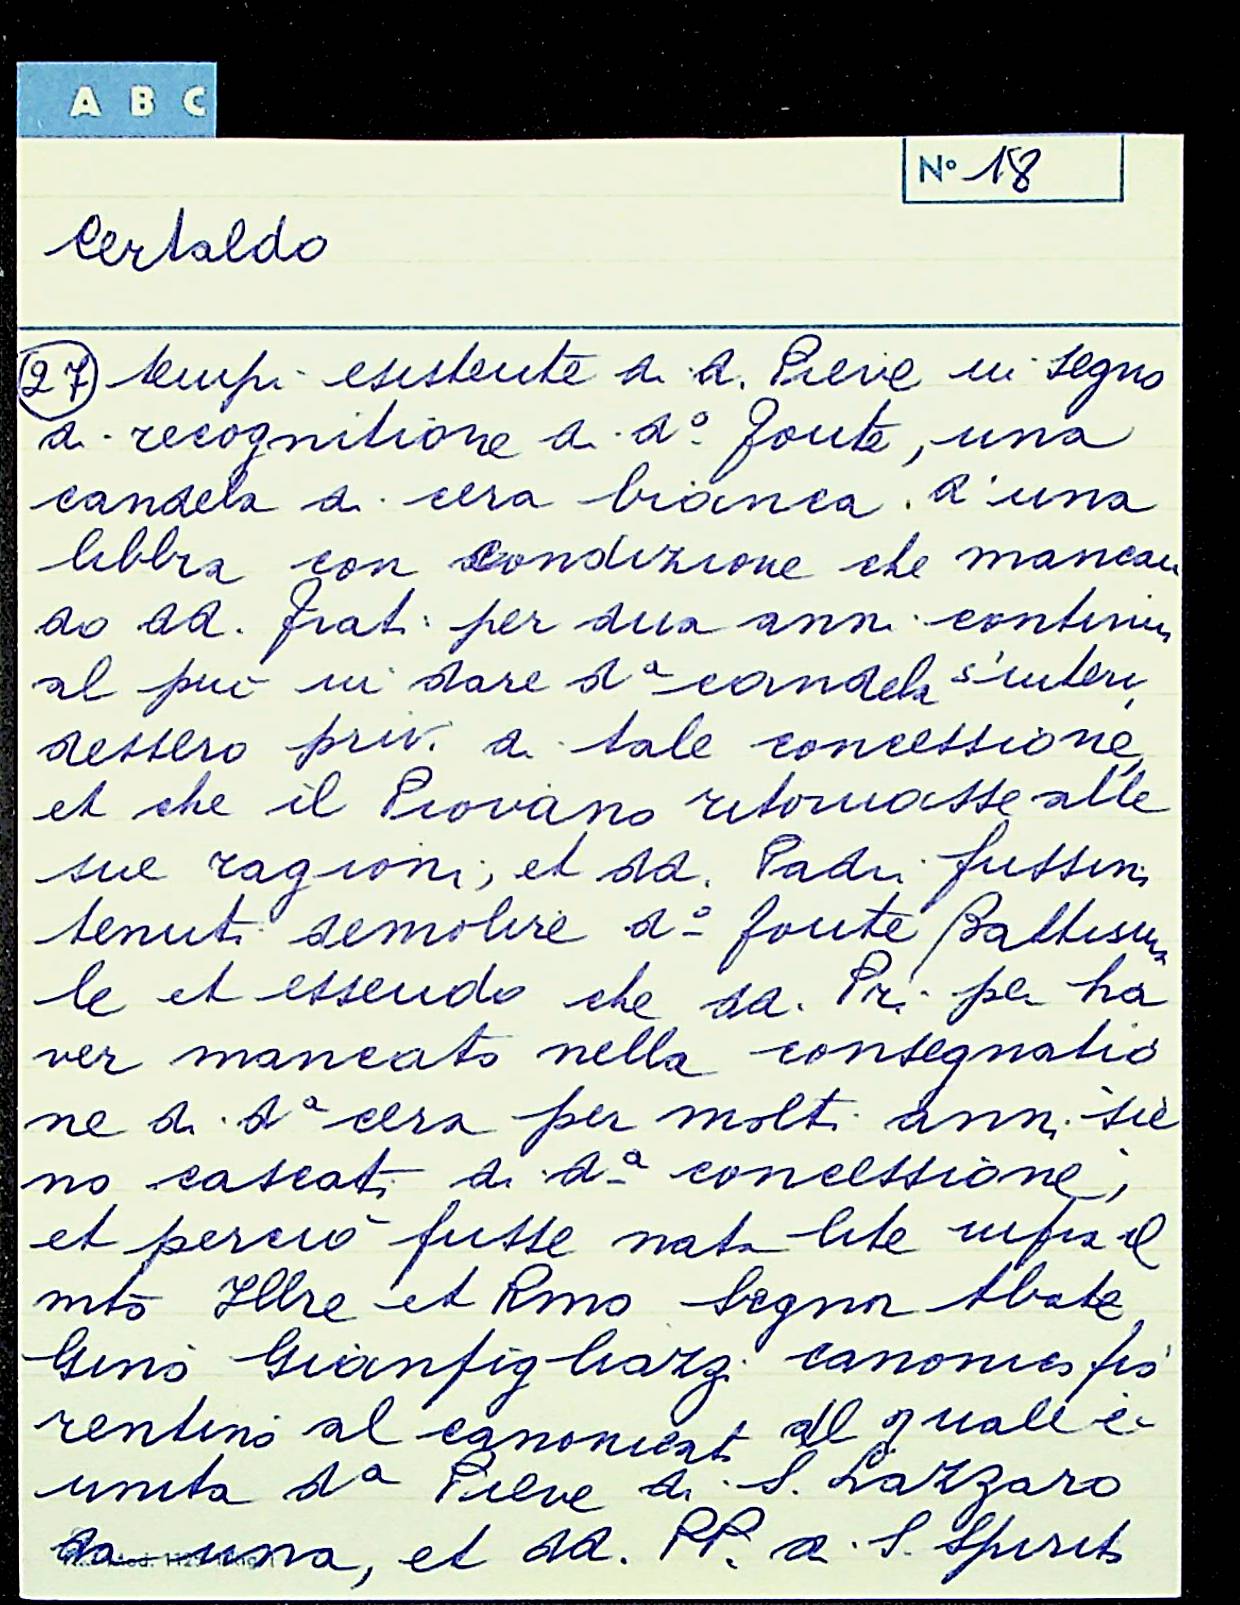 A B C
Nº 18
Certaldo
27 tempi esistente di d. Pieve in segno
di recognitione di dº fonte, una
candela di cera bianca d'una
libbra con condizione che mancan
do dd. frati per dua anni continui
al più in dare dª candela s'inten
dessero privi di tale concessione,
et che il Piovano ritornasse alle
sue ragioni; et dd. Padri fussino
tenuti demolire dº fonte Battisma
le et essendo che dd. Pri. per ha
ver mancato nella consegnatio
ne di dª cera per molti anni sie
no cascati di dª concessione;
et perciò fusse nata lite infra il
mtò Illre et Rmo Segnor Abate
Gino Gianfigliazzi canonico fio
rentino al canonicato del quale è
unita dª Pieve di S. Lazzaro
da una, et dd. PP. di S. Spirito